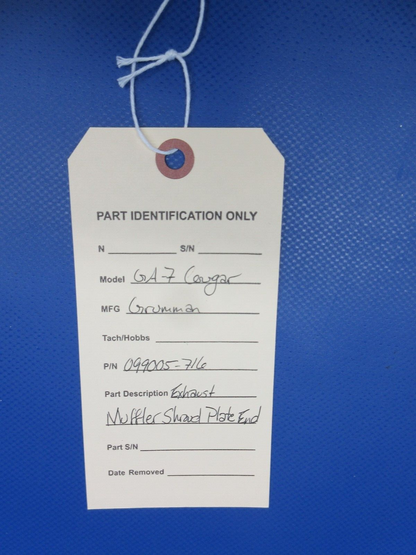 PART IDENTIFICATION ONLY
N S/N
Model GA-7 Cougar
MFG Grumman
Tach/Hobbs
P/N 099005-716
Part Description Exhaust
Muffler Shroud Plate End
Part S/N
Date Removed